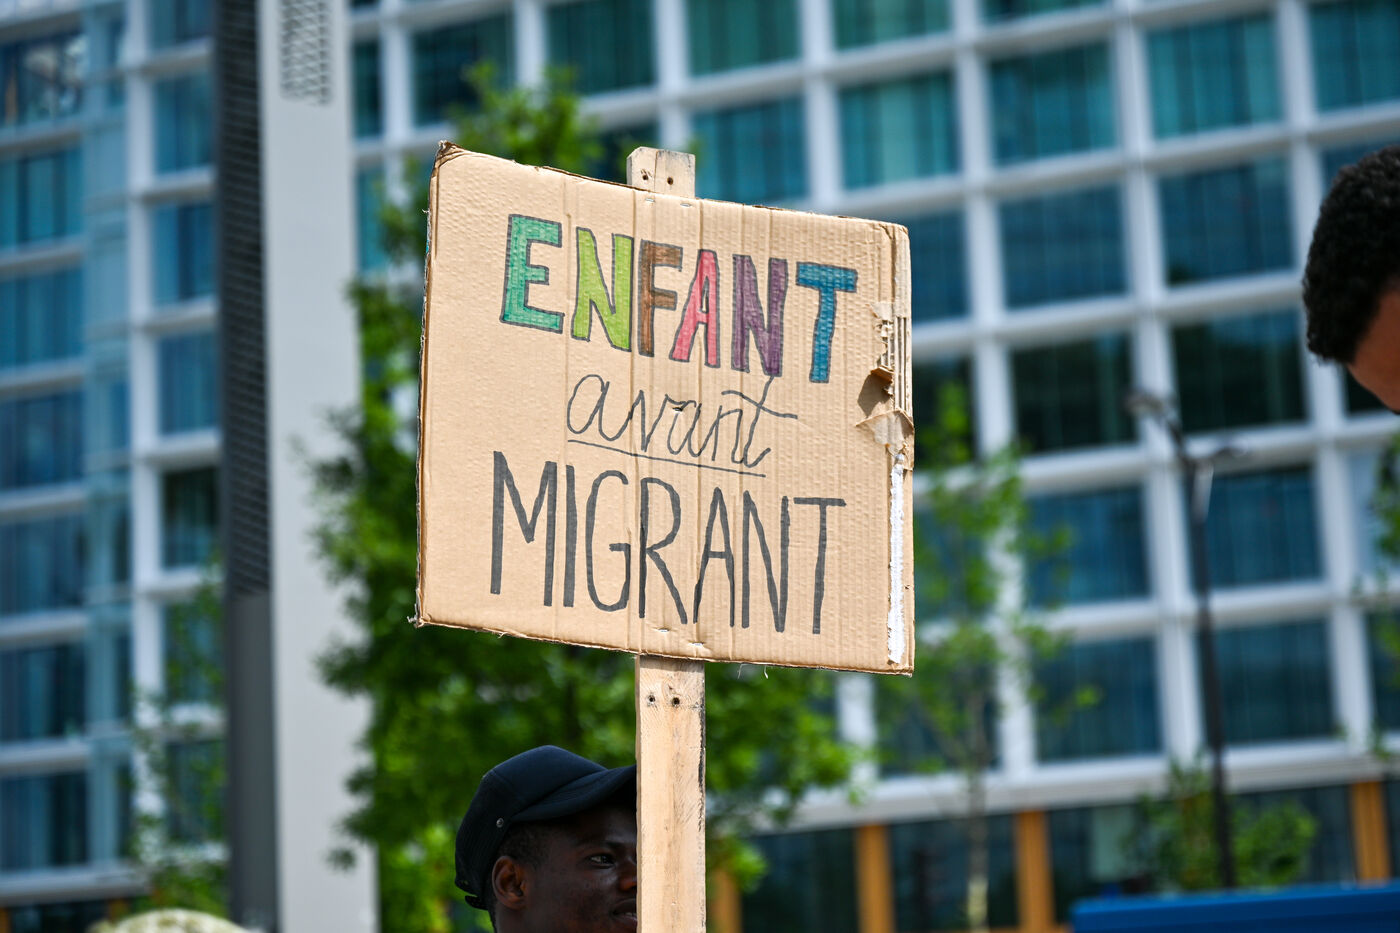 ENFANT
avant
MIGRANT